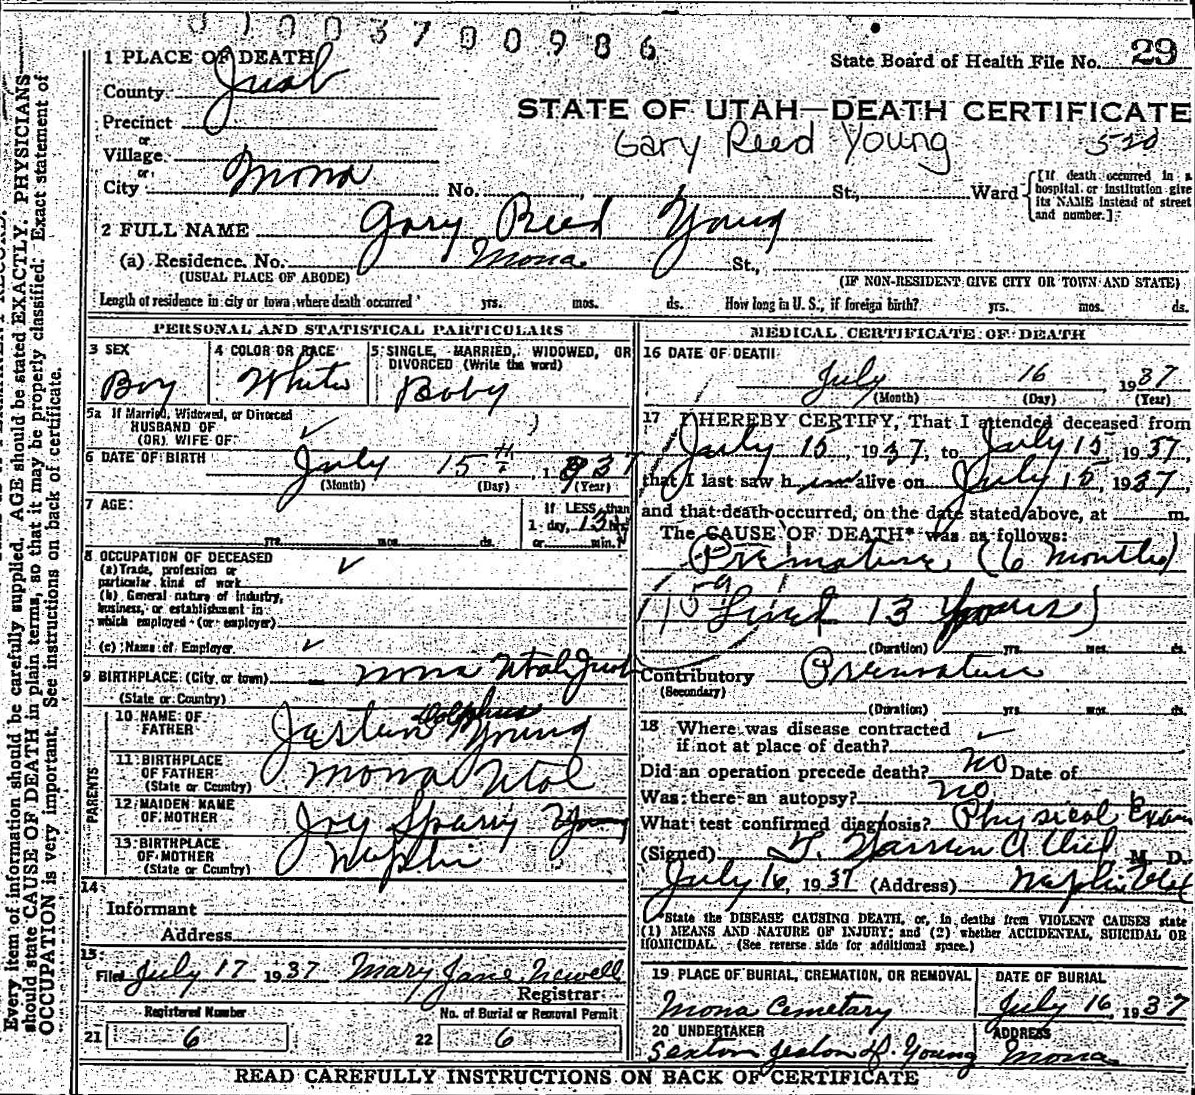 01003700986
State Board of Health File No. 29
STATE OF UTAH—DEATH CERTIFICATE
Gary Reed Young 520
1 PLACE OF DEATH
County Juab
Precinct
or
Village
or
City Mona No. St., Ward
[If death occurred in a
hospital or institution give
its NAME instead of street
and number.]
2 FULL NAME Gary Reed Young
(a) Residence. No. Mona St.,
(USUAL PLACE OF ABODE) (IF NON-RESIDENT GIVE CITY OR TOWN AND STATE)
Length of residence in city or town where death occurred yrs. mos. ds. How long in U. S., if foreign birth? yrs. mos. ds.
PERSONAL AND STATISTICAL PARTICULARS
3 SEX
Boy
4 COLOR OR RACE
White
5 SINGLE, MARRIED, WIDOWED, OR
DIVORCED (Write the word)
Baby
5a If Married, Widowed, or Divorced
HUSBAND OF
(OR) WIFE OF
6 DATE OF BIRTH July 15th, 1937
(Month) (Day) (Year)
7 AGE:
yrs. mos. ds.
If LESS than
1 day, 13 hrs.
or min.
8 OCCUPATION OF DECEASED
(a) Trade, profession or
particular kind of work
(b) General nature of industry,
business, or establishment in
which employed (or employer)
(c) Name of Employer
9 BIRTHPLACE (City or town) Mona Utah Juab
(State or Country)
10 NAME OF
FATHER
Dolphus
Young
11 BIRTHPLACE
OF FATHER
(State or Country)
Mona Utah
12 MAIDEN NAME
OF MOTHER
Joy Young
13 BIRTHPLACE
OF MOTHER
(State or Country)
Nephi
14
Informant
Address
15
Filed July 17 1937 Mary Jane Newell
Registrar
Registered Number No. of Burial or Removal Permit
21 6 22 6
MEDICAL CERTIFICATE OF DEATH
16 DATE OF DEATH
July 16, 1937
(Month) (Day) (Year)
17 I HEREBY CERTIFY, That I attended deceased from
July 15, 1937, to July 15, 1937,
that I last saw him alive on July 15, 1937,
and that death occurred, on the date stated above, at m.
The CAUSE OF DEATH* was as follows:
Premature (6 months)
159 Lived 13 hours)
(Duration) yrs. mos. ds.
Contributory Premature
(Secondary)
(Duration) yrs. mos. ds.
18 Where was disease contracted
if not at place of death?
Did an operation precede death? no Date of
Was there an autopsy? no
What test confirmed diagnosis? Physical Exam
(Signed) M. D.
July 16, 1937 (Address) Nephi Utah
*State the DISEASE CAUSING DEATH, or, in deaths from VIOLENT CAUSES state
(1) MEANS AND NATURE OF INJURY; and (2) whether ACCIDENTAL, SUICIDAL OR
HOMICIDAL. (See reverse side for additional space.)
19 PLACE OF BURIAL, CREMATION, OR REMOVAL
Mona Cemetary
DATE OF BURIAL
July 16, 1937
20 UNDERTAKER
Sexton Young
ADDRESS
Mona
READ CAREFULLY INSTRUCTIONS ON BACK OF CERTIFICATE
Every item of information should be carefully supplied. AGE should be stated EXACTLY. PHYSICIANS
should state CAUSE OF DEATH in plain terms, so that it may be properly classified. Exact statement of
OCCUPATION is very important. See instructions on back of certificate.